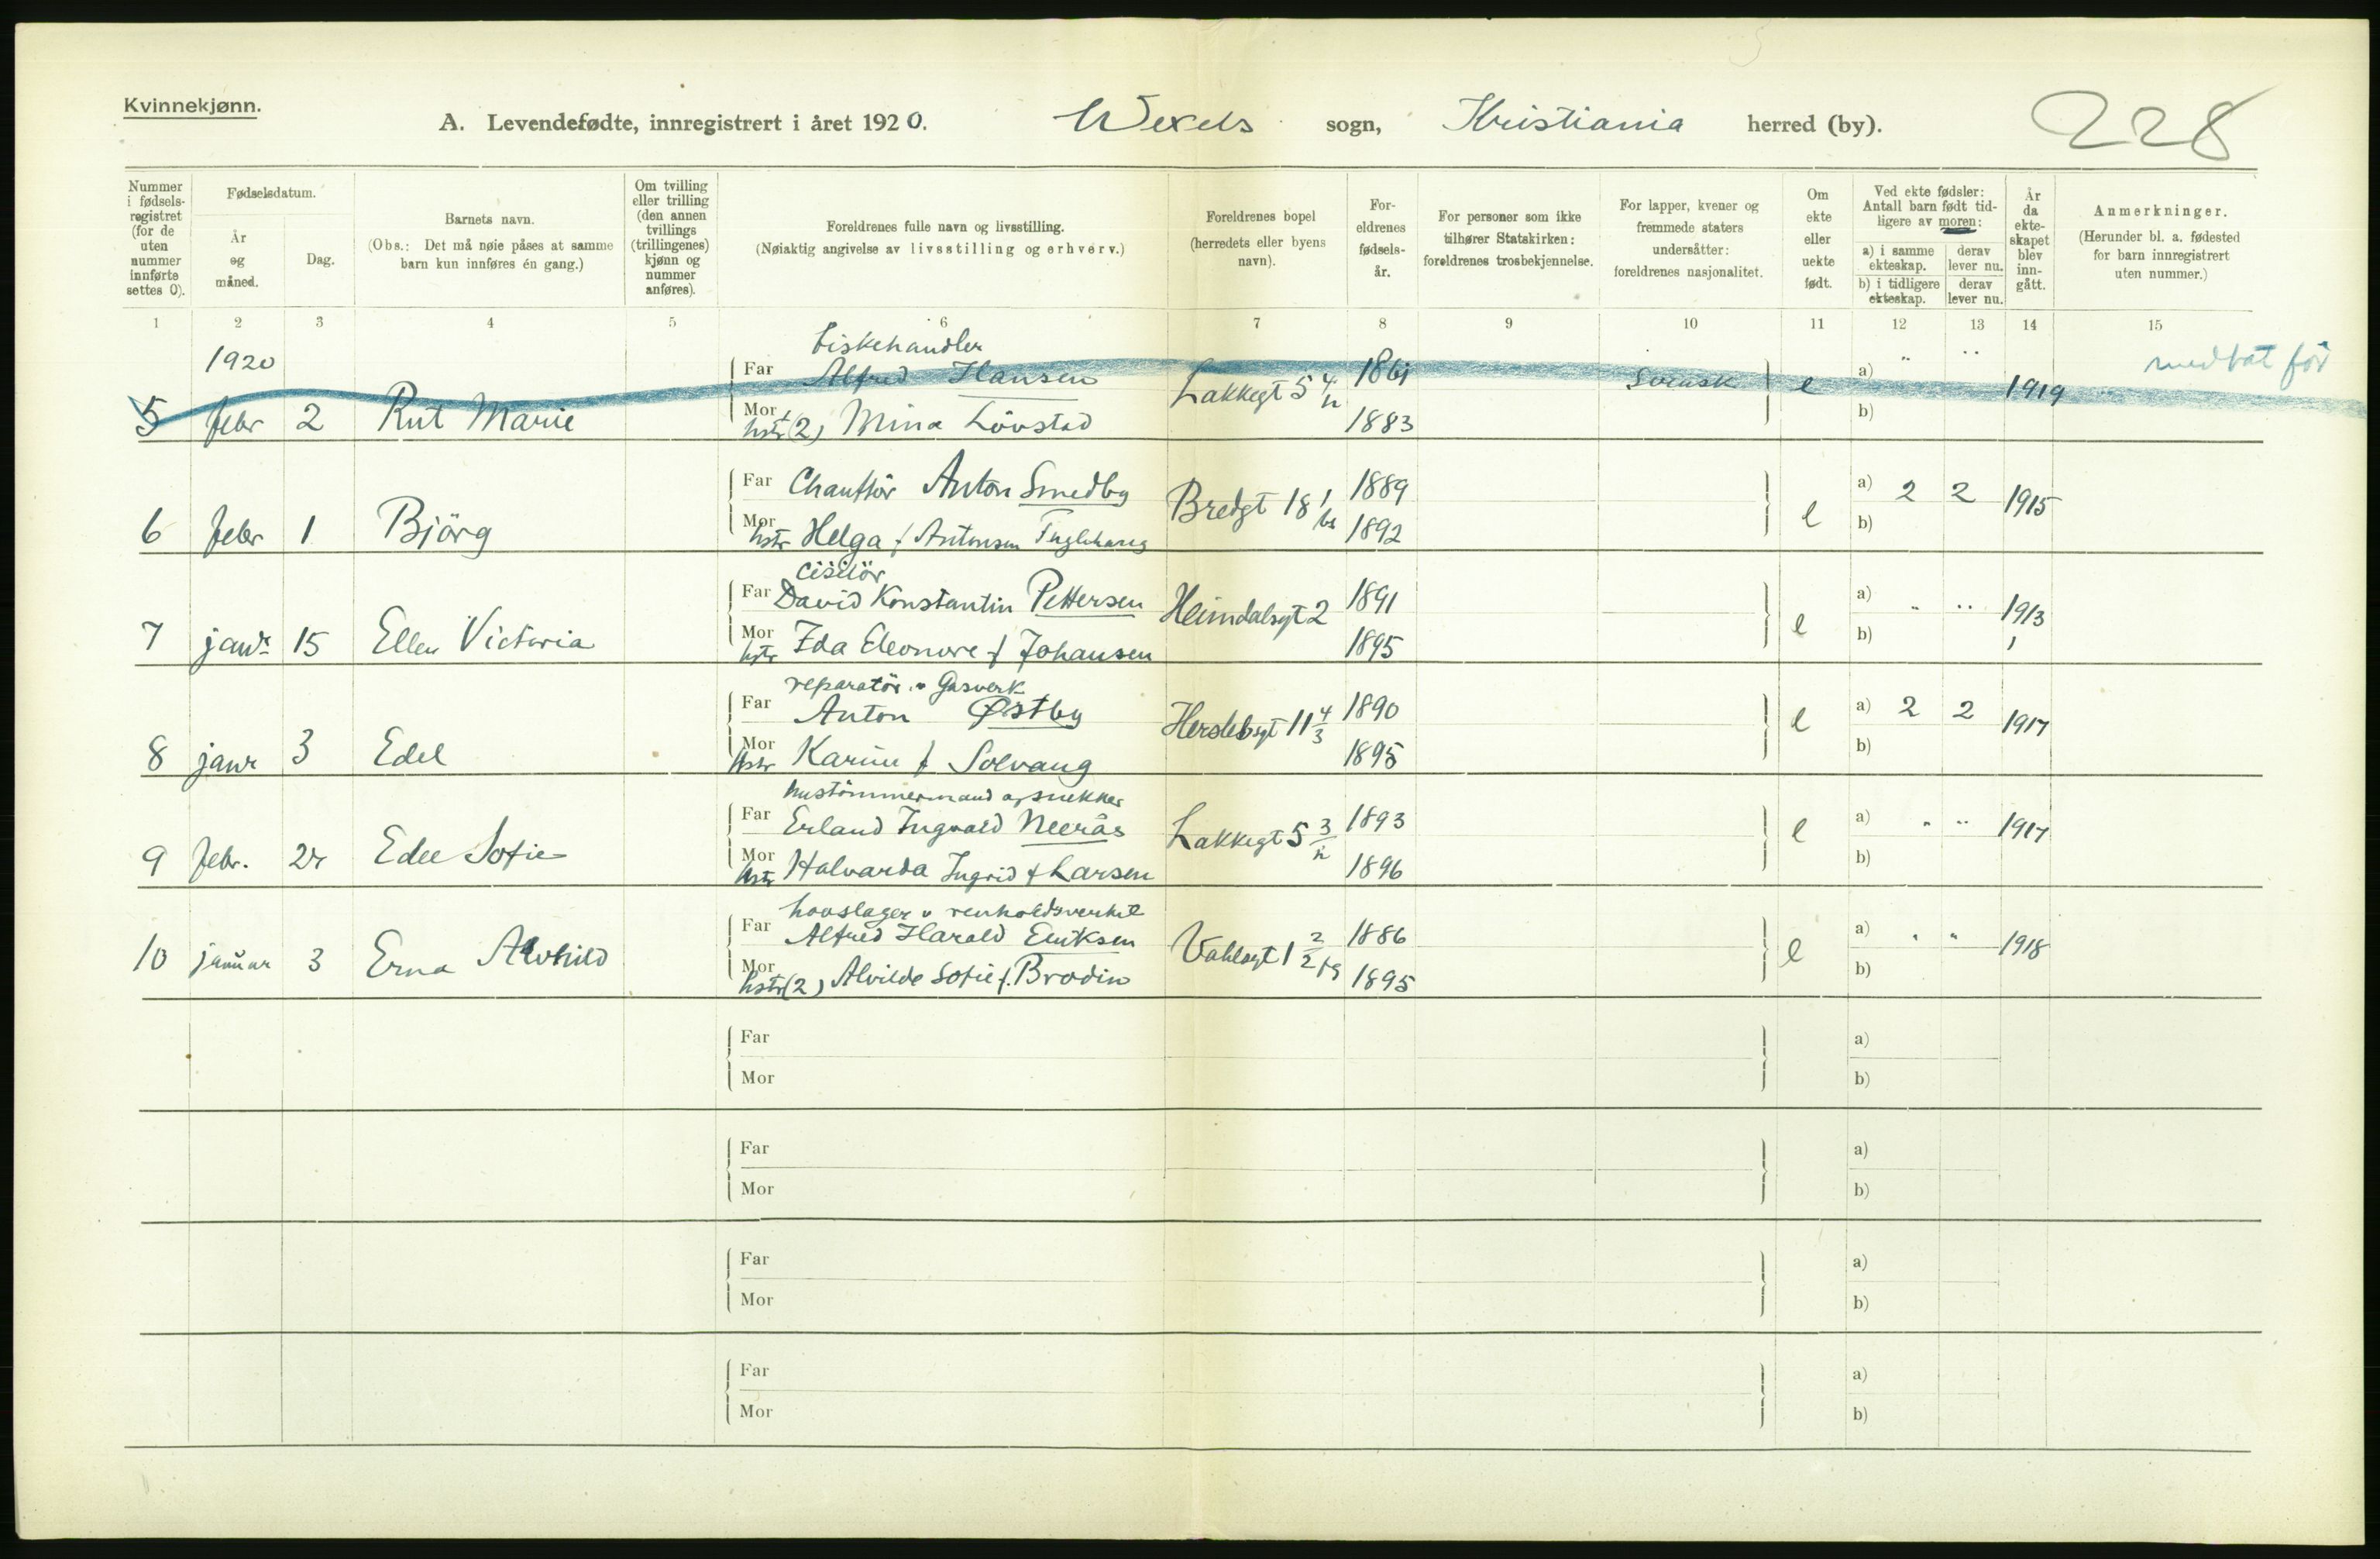 Kvinnekjønn.
A. Levendefødte, innregistrert i året 1920. Wexels sogn, Kristiania herred (by). 228
Nummer i fødsels-registret (for de uten nummer innførte settes 0).
Fødselsdatum.
År og måned.
Dag.
Barnets navn.
(Obs.: Det må nøie påses at samme barn kun innføres én gang.)
Om tvilling eller trilling (den annen tvillings (trillingenes) kjønn og nummer anføres).
Foreldrenes fulle navn og livsstilling.
(Nøiaktig angivelse av livsstilling og erhverv.)
Foreldrenes bopel (herredets eller byens navn).
For-eldrenes fødsels-år.
For personer som ikke tilhører Statskirken: foreldrenes trosbekjennelse.
For lapper, kvener og fremmede staters undersåtter: foreldrenes nasjonalitet.
Om ekte eller uekte født.
Ved ekte fødsler: Antall barn født tid-ligere av moren:
a) i samme ekteskap. derav lever nu.
b) i tidligere ekteskap. derav lever nu.
År da ekte-skapet blev inn-gått.
Anmerkninger.
(Herunder bl. a. fødested for barn innregistrert uten nummer.)
1 2 3 4 5 6 7 8 9 10 11 12 13 14 15
1920
fiskehandler
Far Alfred Hansen
5 febr 2 Rut Marie Lakkegt 5 4/n svensk e a) " " 1919 medtat før
Mor hstr (2) Mina Lövstad 1883 b)
Far Chauffør Anton Smedby 1889 a) 2 2
6 febr 1 Björg Bredgt 18 e 1915
Mor hstr Helga f Antonsen 1892 b)
Ciselör
Far David Konstantin Pettersen 1891 a) " "
7 janr 15 Ellen Victoria Heimdalsgt 2 e 1913
Mor hstr Ida Eleonore f Johansen 1895 b)
reparatör v Gasverk
Far Anton Østby 1890 a) 2 2
8 janr 3 Edel Herslebsgt 11 4/3 e 1917
Mor hstr Karin f Solvang 1895 b)
hustömmermand og snekker
Far Erland Ingvald Neerås 1893 a) " "
9 febr. Sofie Lakkegt 5 3/n e 1917
Mor hstr Halvarda Ingrid f Larsen 1896 b)
hovslager v renholdsverket
Far Alfred Harald Eriksen 1886 a) " "
10 januar 3 Erna Alvhild Vahlsgt 1 2/2 e 1918
Mor hstr (2) Alvilde Sofie f. Brodin 1895 b)
Far a)
Mor b)
Far a)
Mor b)
Far a)
Mor b)
Far a)
Mor b)